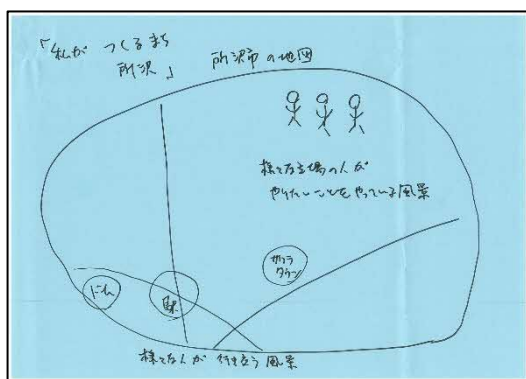 「私が つくるまち
所沢」
所沢市の地図
様々な立場の人が
やりたいことをやっている風景
サクラ
タウン
ドーム
様々な人が 行き交う 風景